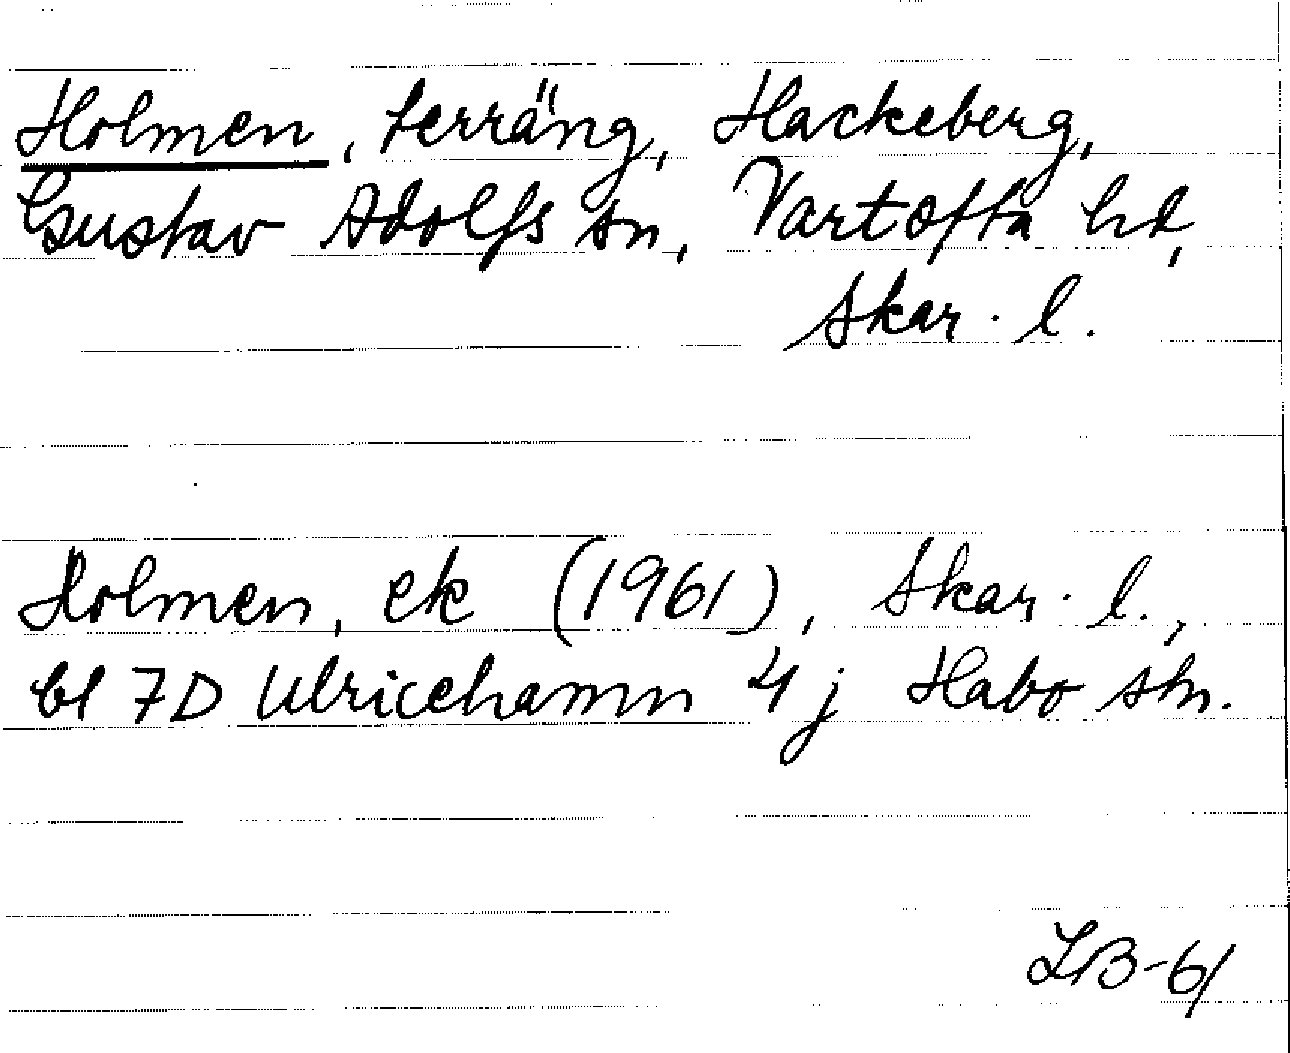 Holmen, terräng, Hackeberg,
Gustav Adolfs sn, Vartofta hd,
Skar. l.
Holmen, ek (1961), Skar. l.,
bl 7D Ulricehamn 4 j Habo shn.
LB-61